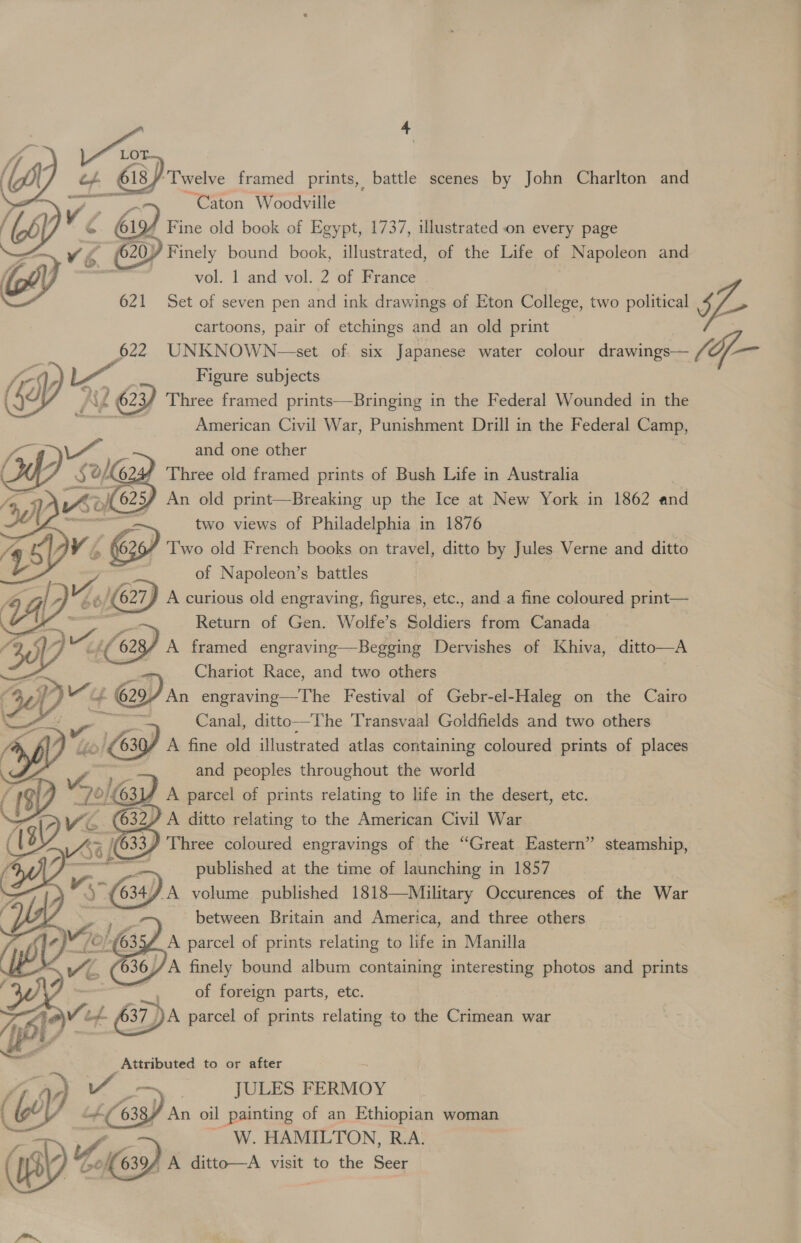 4
LOT
618 Twelve framed prints, battle scenes by John Charlton and
Caton Woodville
619 Fine old book of Egypt, 1737, illustrated on every page
620 Finely bound book, illustrated, of the Life of Napoleon and
vol. 1 and vol. 2 of France
621 Set of seven pen and ink drawings of Eton College, two political
cartoons, pair of etchings and an old print
622 UNKNOWN—set of six Japanese water colour drawings—
Figure subjects
623 Three framed prints—Bringing in the Federal Wounded in the
American Civil War, Punishment Drill in the Federal Camp,
and one other
624 Three old framed prints of Bush Life in Australia
625 An old print—Breaking up the Ice at New York in 1862 and
two views of Philadelphia in 1876
626 Two old French books on travel, ditto by Jules Verne and ditto
of Napoleon's battles
627 A curious old engraving, figures, etc., and a fine coloured print—
Return of Gen. Wolfe's Soldiers from Canada
628 A framed engraving—Begging Dervishes of Khiva, ditto—A
Chariot Race, and two others
629 An engraving—The Festival of Gebr-el-Haleg on the Cairo
Canal, ditto—The Transvaal Goldfields and two others
630 A fine old illustrated atlas containing coloured prints of places
and peoples throughout the world
631 A parcel of prints relating to life in the desert, etc.
632 A ditto relating to the American Civil War
633 Three coloured engravings of the "Great Eastern" steamship,
published at the time of launching in 1857
634 A volume published 1818—Military Occurences of the War
between Britain and America, and three others
635 A parcel of prints relating to life in Manilla
636 A finely bound album containing interesting photos and prints
of foreign parts, etc.
637 A parcel of prints relating to the Crimean war
Attributed to or after
JULES FERMOY
638 An oil painting of an Ethiopian woman
W. HAMILTON, R.A.
639 A ditto—A visit to the Seer